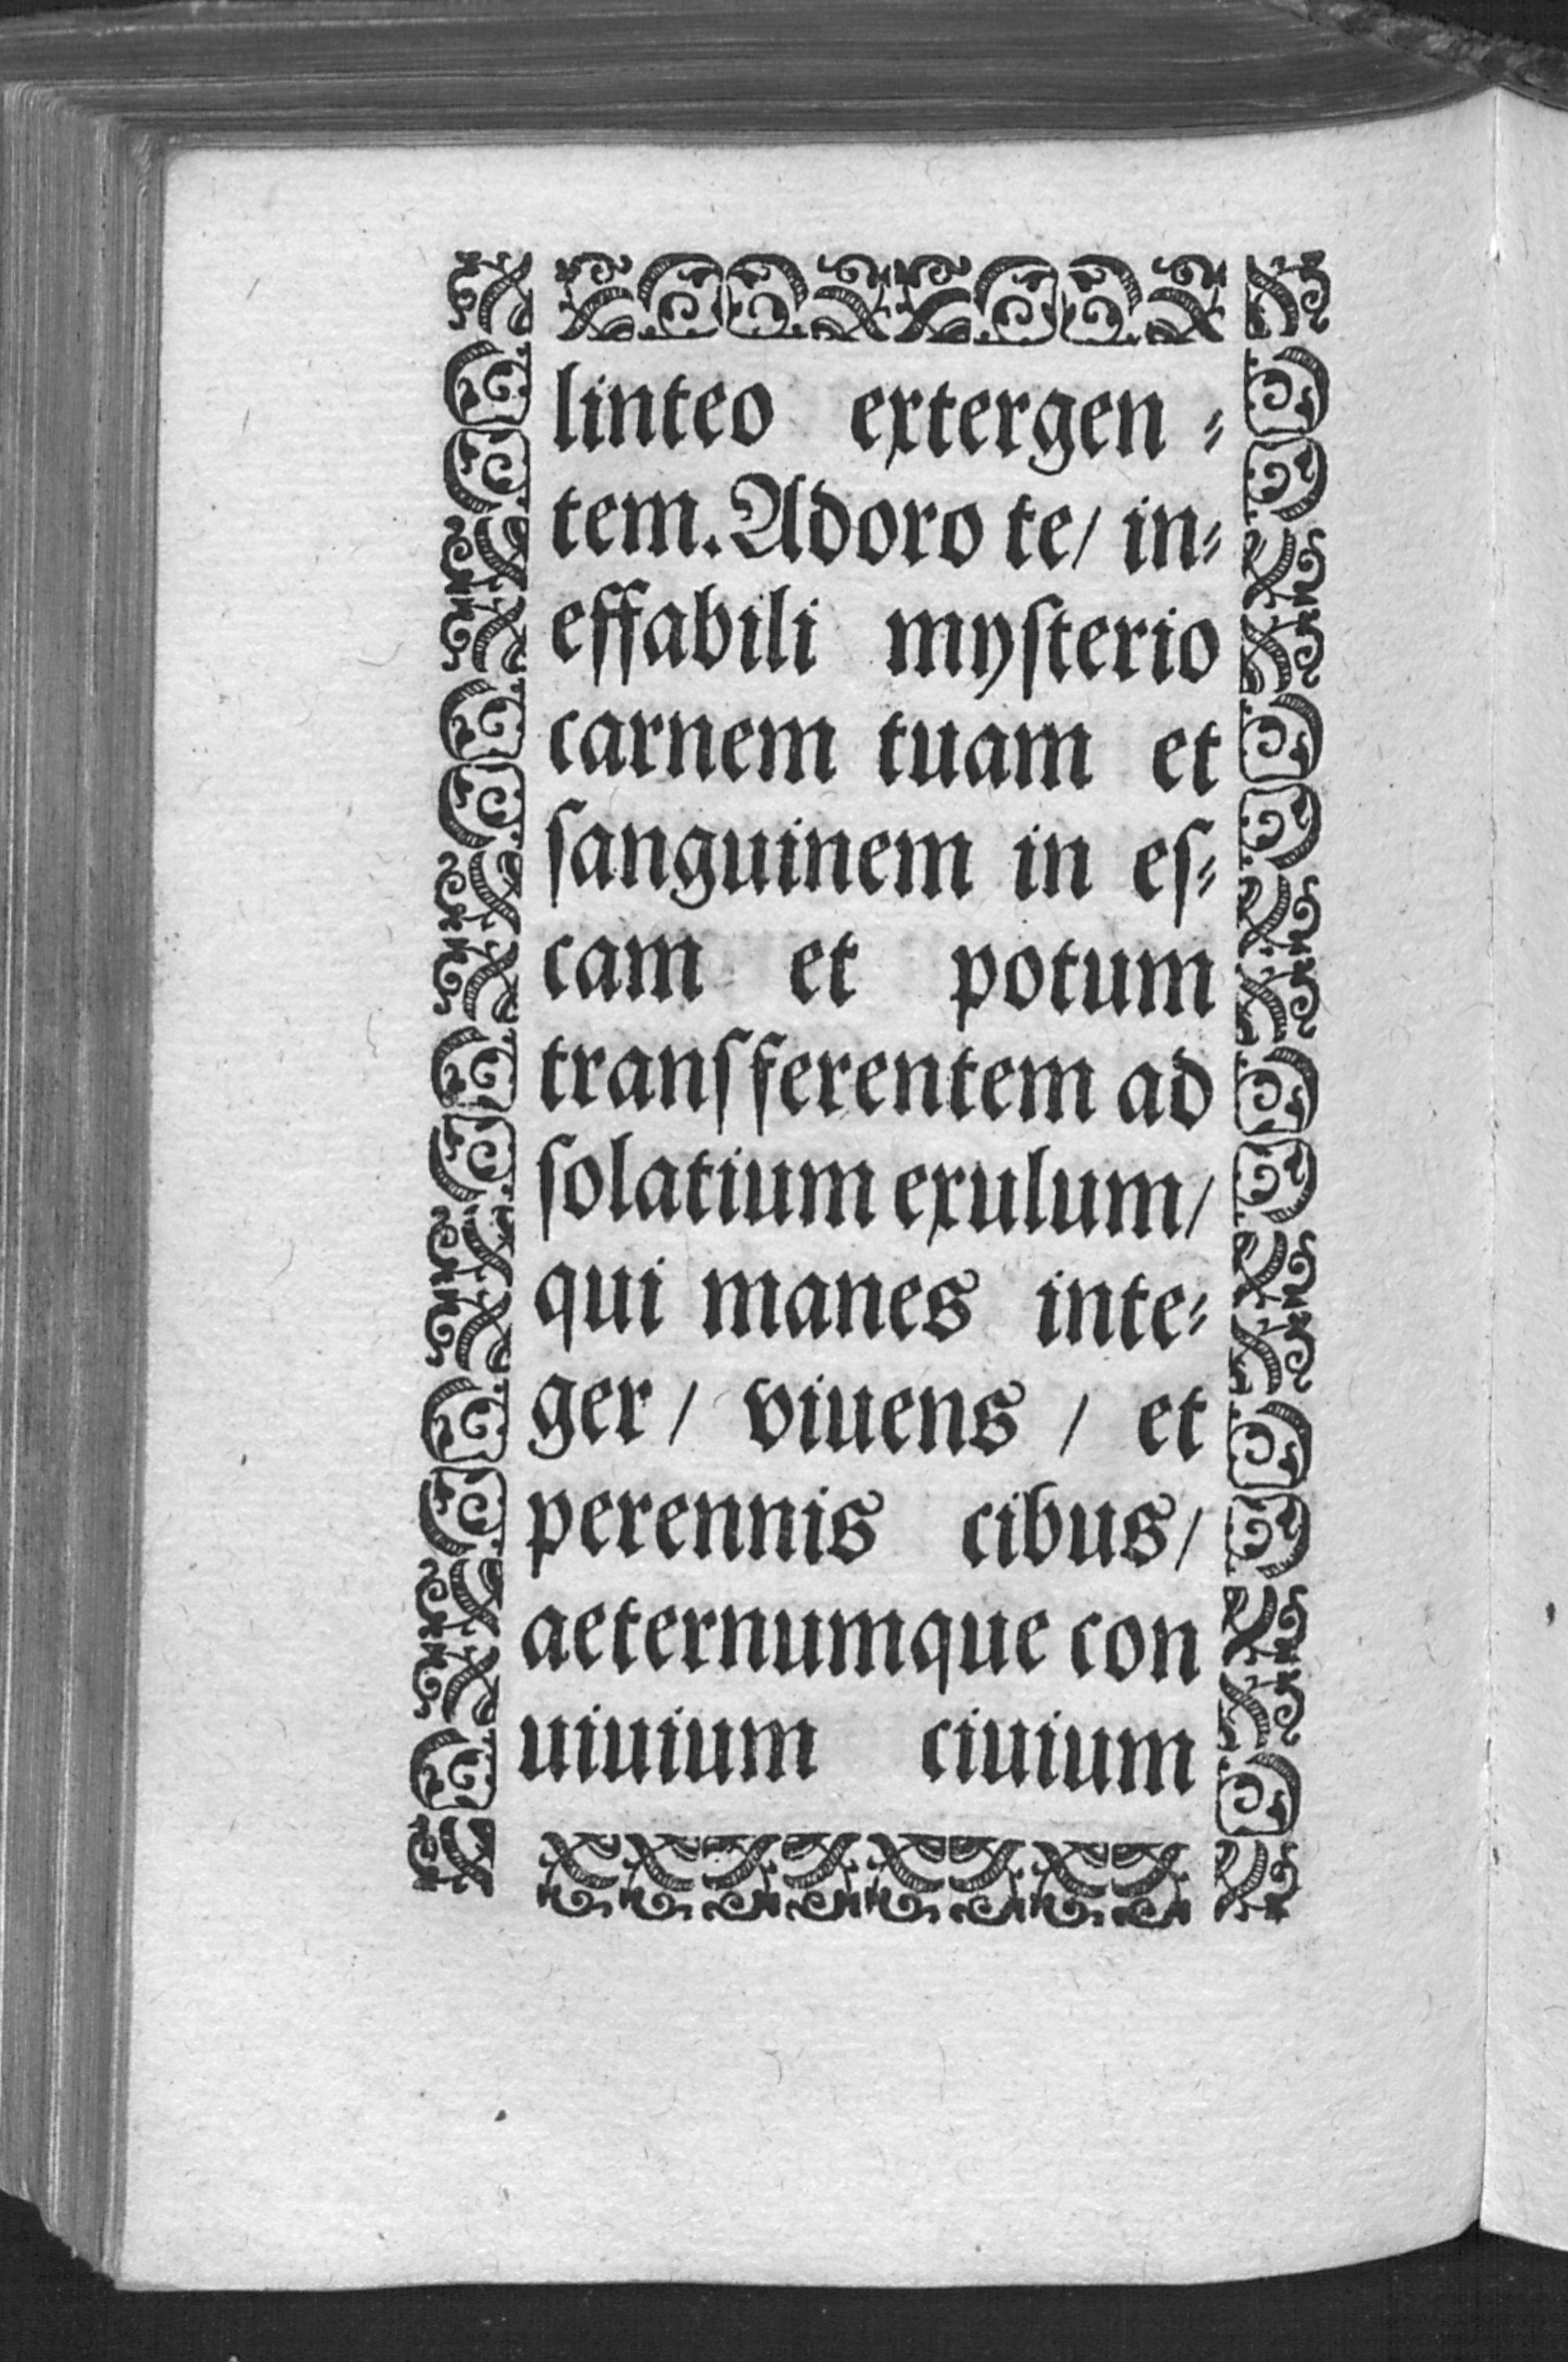 linteo extergen⸗
tem. Adoro te/ in⸗
effabili myſterio
carnem tuam et
ſanguinem in eſ⸗
cam et potum
tranſferentem ad
ſolatium exulum/
qui manes inte⸗
ger/ viuens / et
perennis cibus/
aeternumque con
uiuium ciuium